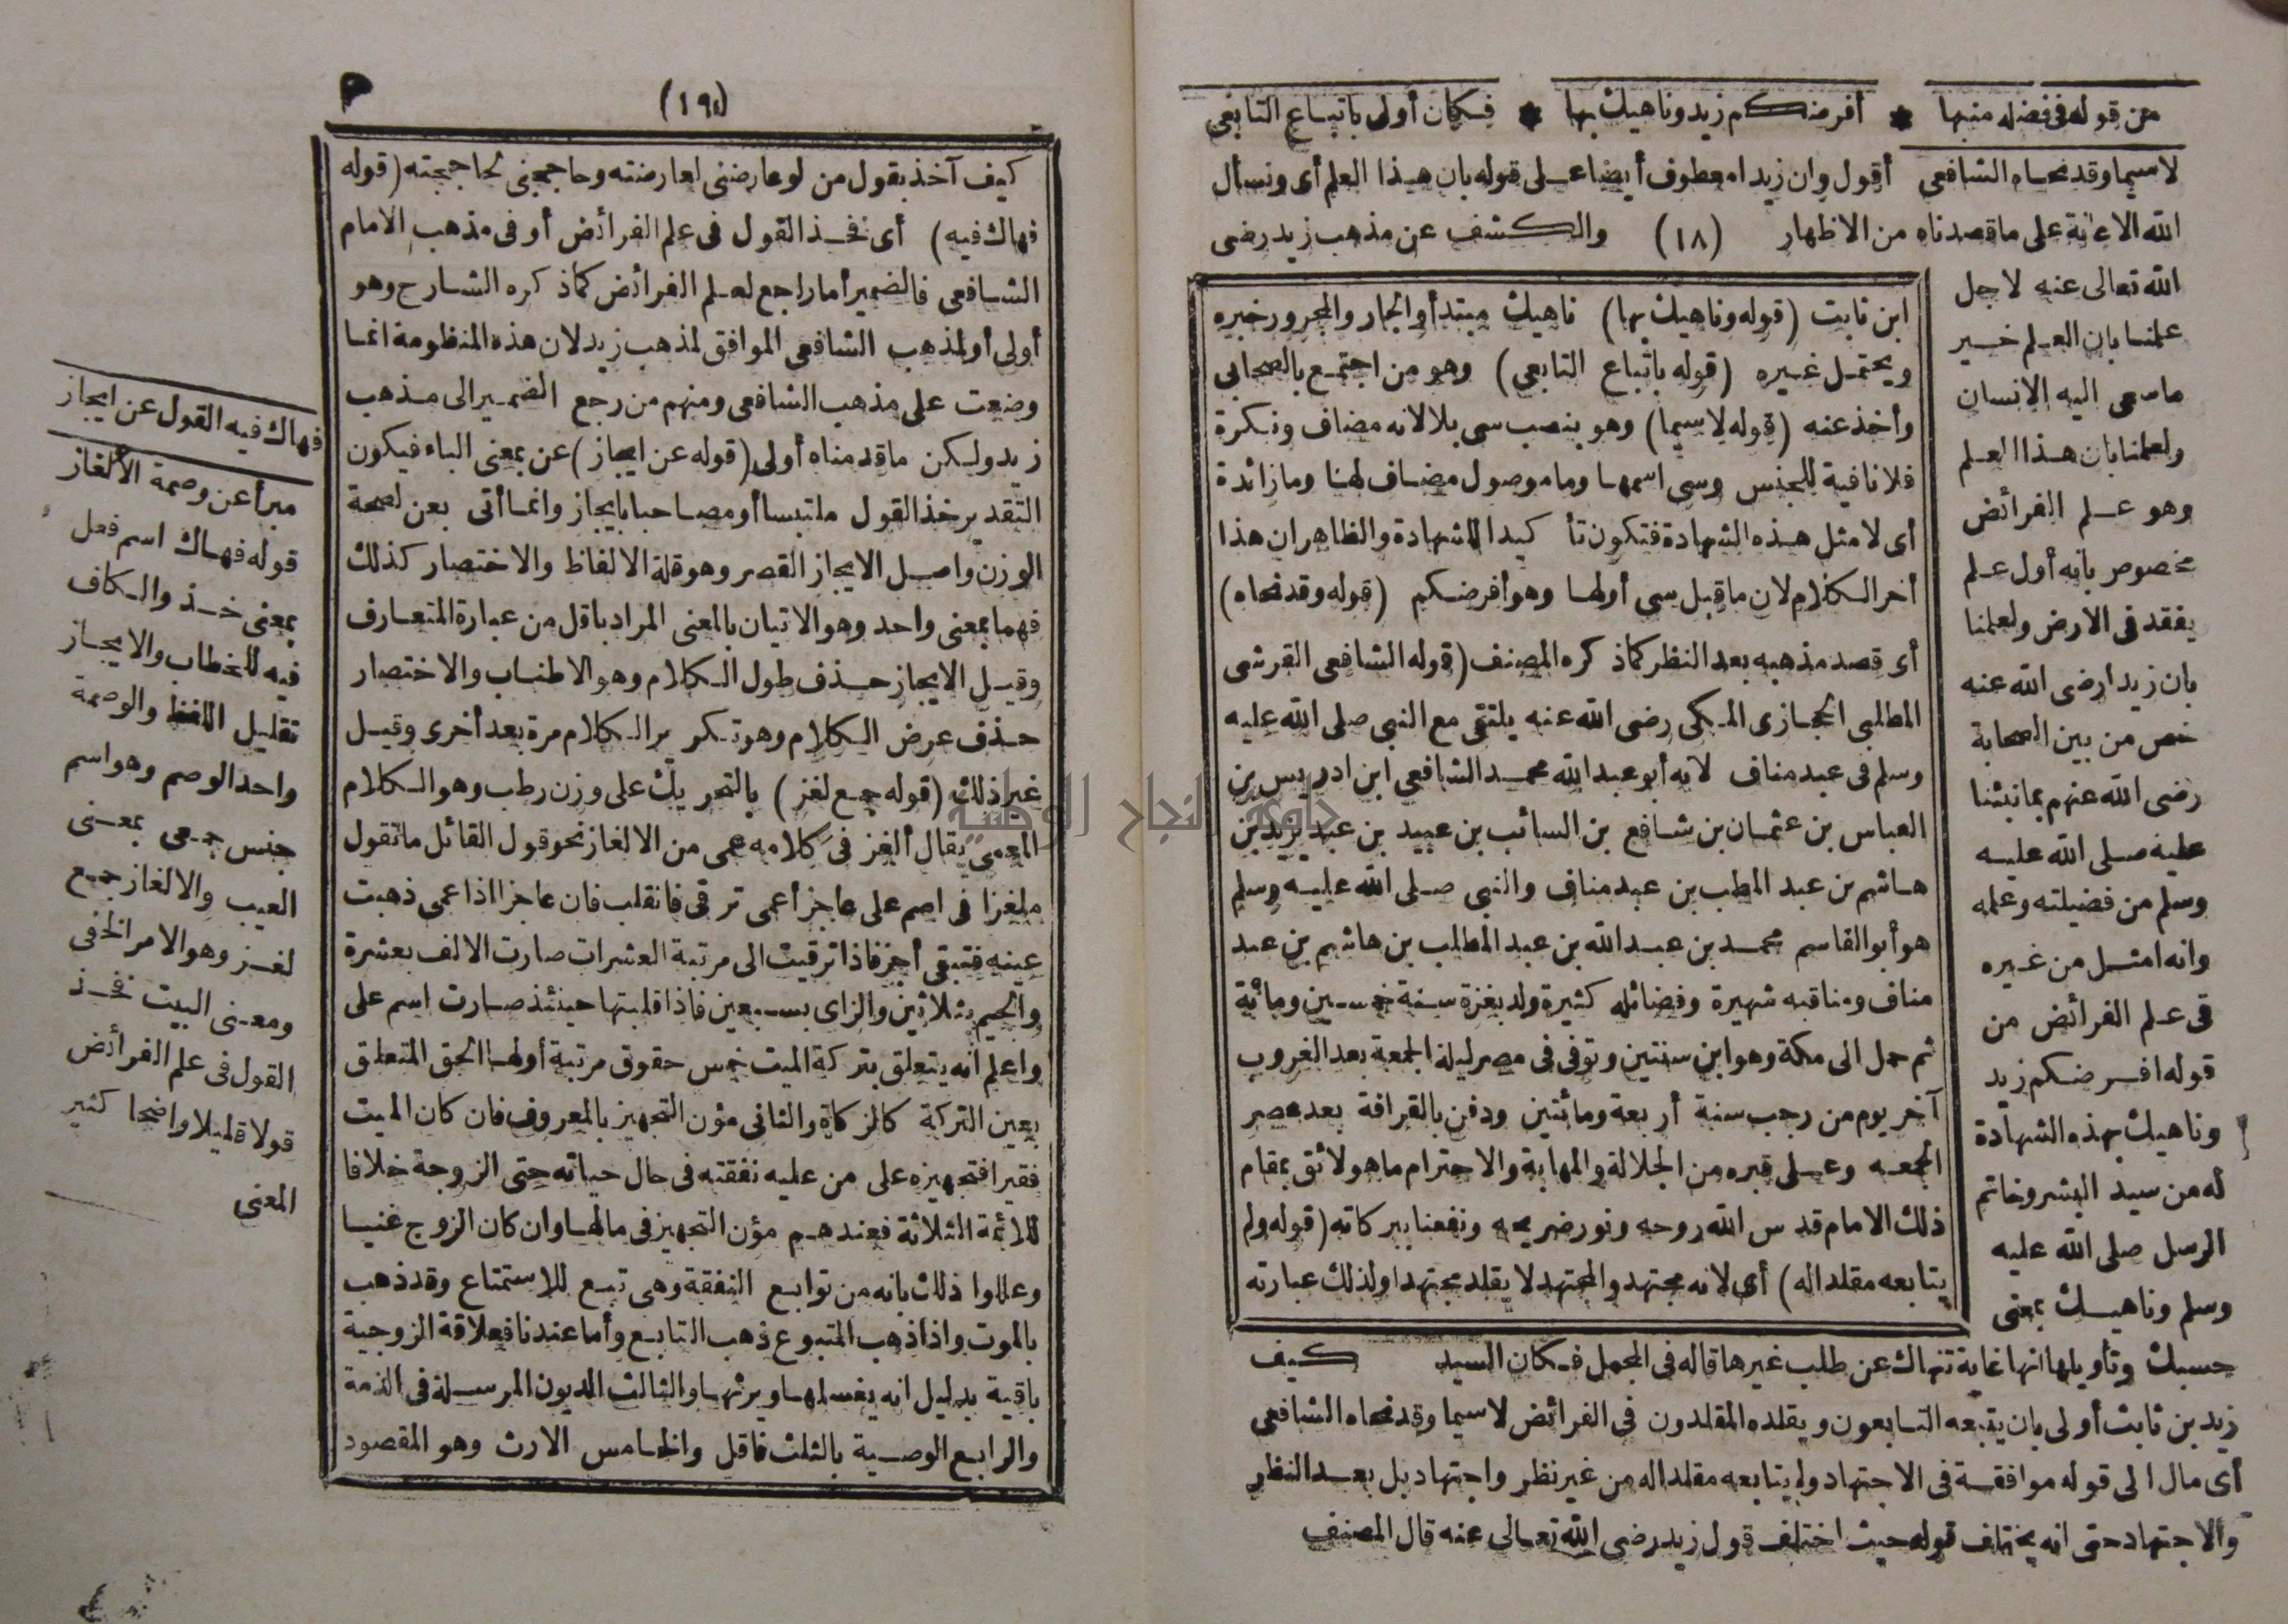 من قوله فى فضله منبها * أفرضكم زيد وناهيك بها * فكان أولى باتباع التابعى
لاسيما وقد نحاه الشافعى أقول وان زيدا معطوف أيضا على قوله بان هذا العلم أى ونسأل
الله الاعانة على ما قصدناه من الاظهار (١٨) والكشف عن مذهب زيد رضى
الله تعالى عنه لاجل
علمنا بان العلم خير
ما سعى اليه الانسان
ولعلمنا بان هذا العلم
وهو علم الفرائض
مخصوص بانه أول علم
يفقد فى الارض ولعلمنا
بان زيدا رضى الله عنه
خص من بين الصحابة
رضى الله عنهم بما نبئنا
عليه صلى الله عليه
وسلم من فضيلته وعلمه
وانه امثل من غيره
فى علم الفرائض من
قوله افرضكم زيد
وناهيك بهذه الشهادة
له من سيد البشر وخاتم
الرسل صلى الله عليه
وسلم وناهيك بمعنى
حسبك وتأويلها انها غاية تنهاك عن طلب غيرها قاله فى المجمل فكان السيد كيف
زيد بن ثابت أولى بان يتبعه التابعون ويقلده المقلدون فى الفرائض لاسيما وقد نحاه الشافعى
أى مال الى قوله موافقة فى الاجتهاد ولم يتابعه مقلدا له من غير نظر واجتهاد بل بعد النظر
والاجتهاد حتى انه يختلف قوله حيث اختلف قول زيد رضى الله تعالى عنه قال المصنف
ابن ثابت (قوله وناهيك بها) ناهيك مبتدأ والجار والمجرور خبره
ويحتمل غيره (قوله باتباع التابعى) وهو من اجتمع بالصحابى
وأخذ عنه (قوله لاسيما) وهو بنصب سى بلا لانه مضاف ونكرة
فلا نافية للجنس وسى اسمها وما موصول مضاف لها وما زائدة
أى لا مثل هذه الشهادة فتكون تأكيدا للشهادة والظاهر ان هذا
أخر الكلام لان ما قبل سى أولها وهو أفرضكم (قوله وقد نحاه)
أى قصد مذهبه بعد النظر كما ذكره المصنف (قوله الشافعى القرشى
المطلبى الحجازى المكى رضى الله عنه يلتقى مع النبى صلى الله عليه
وسلم فى عبد مناف لانه أبو عبد الله محمد الشافعى ابن ادريس بن
العباس بن عثمان بن شافع بن السائب بن عبيد بن عبد يزيد بن
هاشم بن عبد المطب بن عبد مناف والنبى صلى الله عليه وسلم
هو أبو القاسم محمد بن عبد الله بن عبد المطلب بن هاشم بن عبد
مناف ومناقبه شهيرة وفضائله كثيرة ولد بغزة سنة خمسين ومائة
ثم حمل الى مكة وهو ابن سنتين وتوفى فى مصر ليلة الجمعة بعد الغروب
آخر يوم من رجب سنة أربعة ومائتين ودفن بالقرافة بعد عصر
الجمعه وعلى قبره من الجلالة والمهابة والاحترام ما هو لائق بمقام
ذلك الامام قدس الله روحه ونور ضريحه ونفعنا ببركاته (قوله ولم
يتابعه مقلدا له) أى لانه مجتهد والمجتهد لا يقلد مجتهدا ولذلك عبارته
(١٩)
كيف آخذ بقول من لو عارضنى لعارضته وحاججنى لحاججته (قوله
فهاك فيه) أى فخذ القول فى علم الفرائض أو فى مذهب الامام
الشافعى فالضمير أما راجع لعلم الفرائض كما ذكره الشارح وهو
أولى أو لمذهب الشافعى الموافق لمذهب زيد لان هذه المنظومة انما
وضعت على مذهب الشافعى ومنهم من رجع الضمير الى مذهب
زيد ولكن ما قدمناه أولى (قوله عن ايجاز) عن بمعنى الباء فيكون
التقدير خذ القول ملتبسا أو مصاحبا بايجاز وانما أتى بعن لصحة
الوزن واصل الايجاز القصر وهو قلة الالفاظ والاختصار كذلك
فهما بمعنى واحد وهو الاتيان بالمعنى المراد باقل من عبارة المتعارف
وقيل الايجاز حذف طول الكلام وهو الاطناب والاختصار
حذف عرض الكلام وهو تكرير الكلام مرة بعد أخرى وقيل
غير ذلك (قوله جمع لغز) بالتحريك على وزن رطب وهو الكلام
المعمى يقال ألغز فى كلامه عمى من الالغاز نحو قول القائل ما تقول
ملغزا فى اسم على عاجز أعمى ترقى فانقلب فان عاجزا اذا عمى ذهبت
عينه فتبقى أجز فاذا ترقيت الى مرتبة العشرات صارت الالف بعشرة
والجيم بثلاثين والزاى بسبعين فاذا قلبتها حينئذ صارت اسم على
واعلم انه يتعلق بتركة الميت خمس حقوق مرتبة أولها الحق المتعلق
بعين التركة كالزكاة والثانى مؤن التجهيز بالمعروف فان كان الميت
فقيرا فتجهيزه على من عليه نفقته فى حال حياته حتى الزوجة خلافا
للائمة الثلاثة فعندهم مؤن التجهيز فى مالها وان كان الزوج غنيا
وعللوا ذلك بانه من توابع النفقة وهى تبع للاستمتاع وقد ذهب
بالموت واذا ذهب المتبوع ذهب التابع وأما عندنا فعلاقة الزوجية
باقية بدليل انه يغسلها ويرثها والثالث الديون المرسلة فى الذمة
والرابع الوصية بالثلث فاقل والخامس الارث وهو المقصود
فهاك فيه القول عن ايجاز
مبرأ عن وصمة الألغاز
قوله فهاك اسم فعل
بمعنى خذ والكاف
فيه للخطاب والايجاز
تقليل اللفظ والوصمة
واحد الوصم وهو اسم
جنس جمعى بمعنى
العيب والالغاز جمع
لغز وهو الامر الخفى
ومعنى البيت فخذ
القول فى علم الفرائض
قولا قليلا واضحا كثير
المعنى